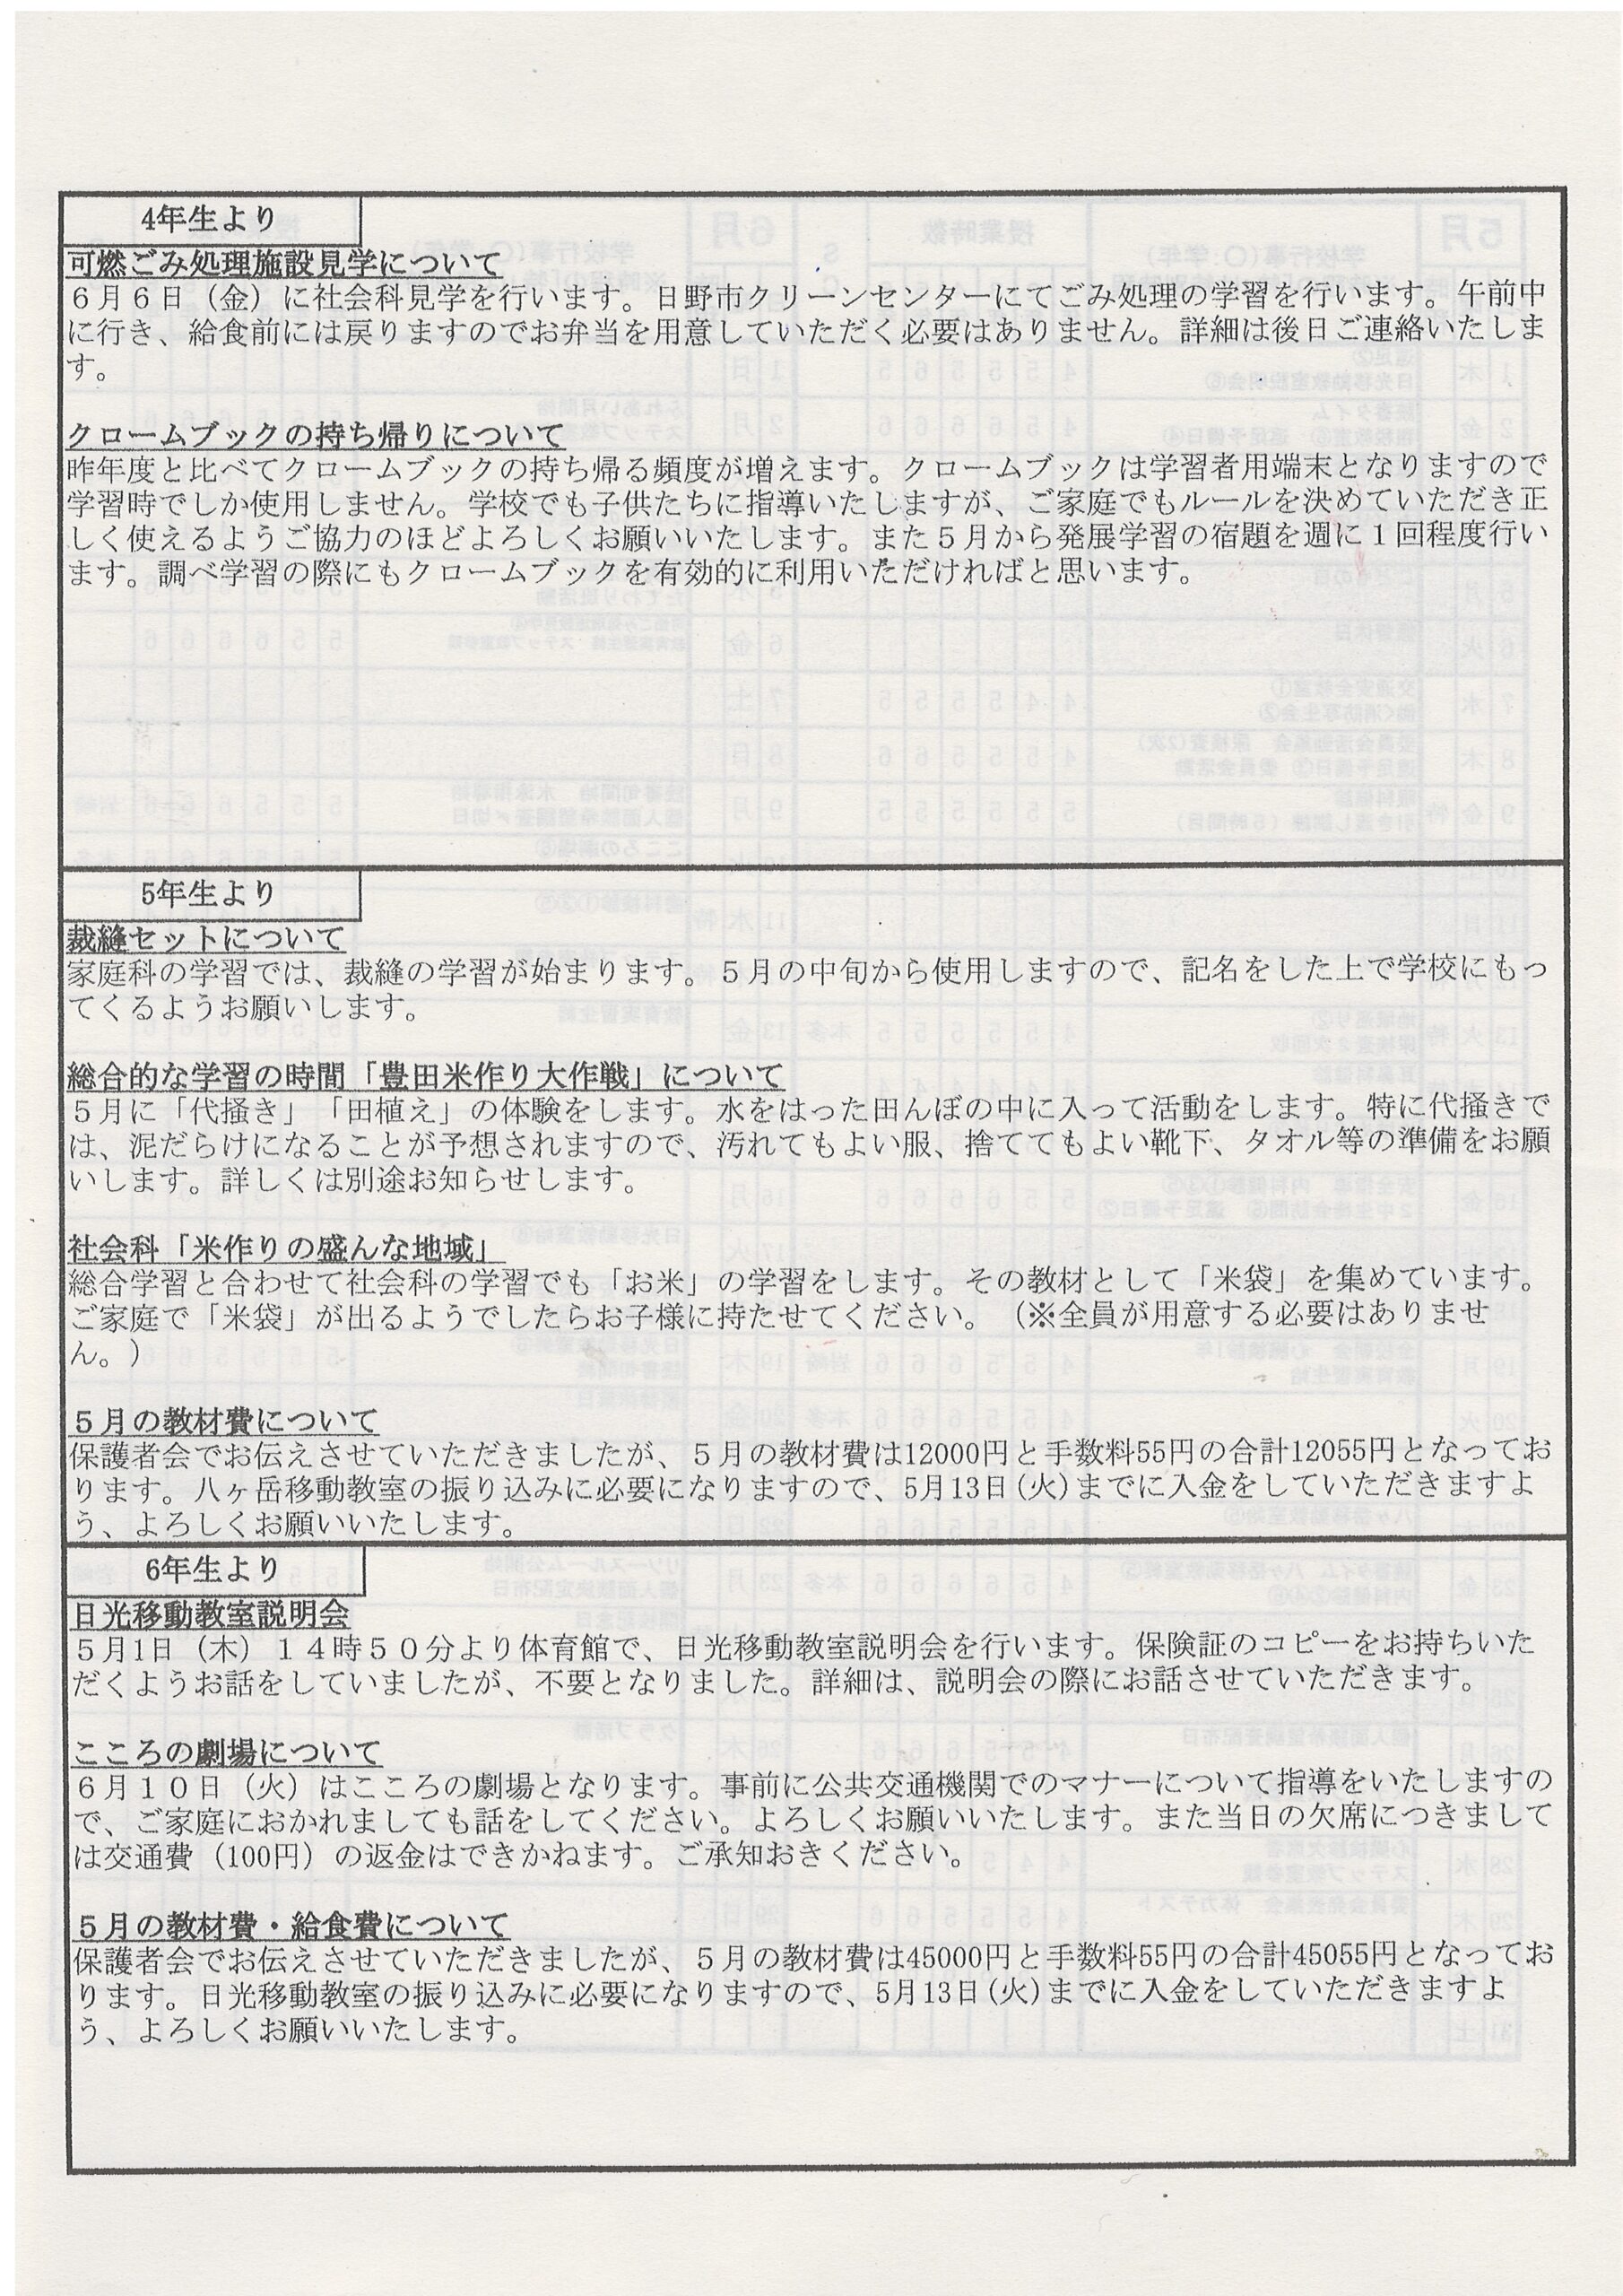 4年生より
可燃ごみ処理施設見学について
６月６日（金）に社会科見学を行います。日野市クリーンセンターにてごみ処理の学習を行います。午前中
に行き、給食前には戻りますのでお弁当を用意していただく必要はありません。詳細は後日ご連絡いたしま
す。
クロームブックの持ち帰りについて
昨年度と比べてクロームブックの持ち帰る頻度が増えます。クロームブックは学習者用端末となりますので
学習時でしか使用しません。学校でも子供たちに指導いたしますが、ご家庭でもルールを決めていただき正
しく使えるようご協力のほどよろしくお願いいたします。また５月から発展学習の宿題を週に１回程度行い
ます。調べ学習の際にもクロームブックを有効的に利用いただければと思います。
5年生より
裁縫セットについて
家庭科の学習では、裁縫の学習が始まります。５月の中旬から使用しますので、記名をした上で学校にもっ
てくるようお願いします。
総合的な学習の時間「豊田米作り大作戦」について
５月に「代掻き」「田植え」の体験をします。水をはった田んぼの中に入って活動をします。特に代掻きで
は、泥だらけになることが予想されますので、汚れてもよい服、捨ててもよい靴下、タオル等の準備をお願
いします。詳しくは別途お知らせします。
社会科「米作りの盛んな地域」
総合学習と合わせて社会科の学習でも「お米」の学習をします。その教材として「米袋」を集めています。
ご家庭で「米袋」が出るようでしたらお子様に持たせてください。（※全員が用意する必要はありませ
ん。）
５月の教材費について
保護者会でお伝えさせていただきましたが、５月の教材費は12000円と手数料55円の合計12055円となってお
ります。八ヶ岳移動教室の振り込みに必要になりますので、5月13日(火)までに入金をしていただきますよ
う、よろしくお願いいたします。
6年生より
日光移動教室説明会
５月1日（木）１４時５０分より体育館で、日光移動教室説明会を行います。保険証のコピーをお持ちいた
だくようお話をしていましたが、不要となりました。詳細は、説明会の際にお話させていただきます。
こころの劇場について
６月１０日（火）はこころの劇場となります。事前に公共交通機関でのマナーについて指導をいたしますの
で、ご家庭におかれましても話をしてください。よろしくお願いいたします。また当日の欠席につきまして
は交通費（100円）の返金はできかねます。ご承知おきください。
５月の教材費・給食費について
保護者会でお伝えさせていただきましたが、５月の教材費は45000円と手数料55円の合計45055円となってお
ります。日光移動教室の振り込みに必要になりますので、5月13日(火)までに入金をしていただきますよ
う、よろしくお願いいたします。